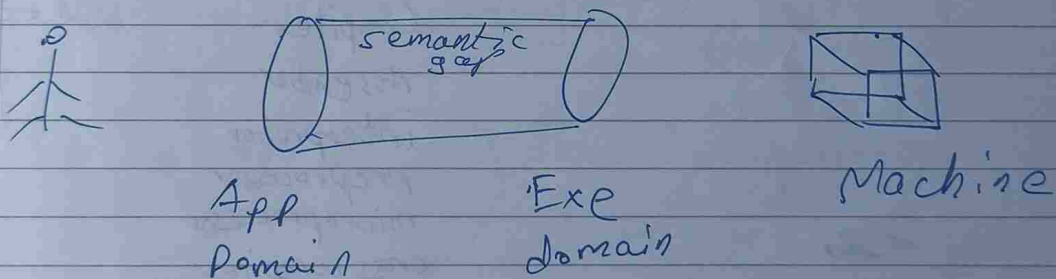 semantic
gap
App
Domain
Exe
domain
Machine